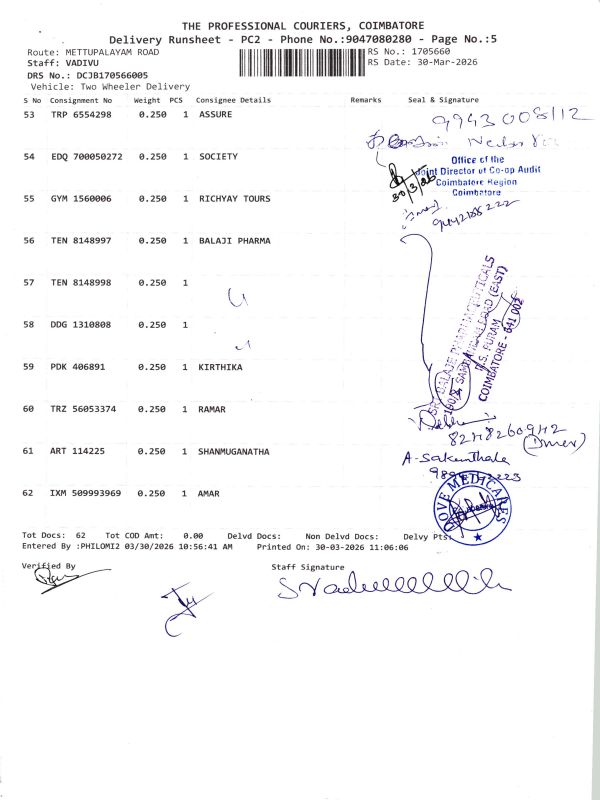 THE PROFESSIONAL COURIERS, COIMBATORE
Delivery Runsheet - PC2 - Phone No.:9047080280 - Page No.:5
Route: METTUPALAYAM ROAD
RS No.: 1705660
Staff: VADIVU
RS Date: 30-Mar-2026
DRS No.: DCJB170566005
Vehicle: Two Wheeler Delivery
S No Consignment No Weight PCS Consignee Details Remarks Seal & Signature
53 TRP 6554298 0.250 1 ASSURE
9943008112
54 EDQ 700050272 0.250 1 SOCIETY
Office of the
Joint Director of Co-op Audit
Coimbatore Region
Coimbatore
30/3/26
55 GYM 1560006 0.250 1 RICHYAY TOURS
9442185222
56 TEN 8148997 0.250 1 BALAJI PHARMA
57 TEN 8148998 0.250 1
58 DDG 1310808 0.250 1
SRI BALAJE PHARMACEUTICALS
R.S. PURAM
COIMBATORE - 641 002
59 PDK 406891 0.250 1 KIRTHIKA
60 TRZ 56053374 0.250 1 RAMAR
8248260942
61 ART 114225 0.250 1 SHANMUGANATHA
A-Sakunthala
62 IXM 509993969 0.250 1 AMAR
MEDICARES
Tot Docs: 62 Tot COD Amt: 0.00 Delvd Docs: Non Delvd Docs: Delvy Pts:
Entered By :PHILOMI2 03/30/2026 10:56:41 AM Printed On: 30-03-2026 11:06:06
Verified By
Staff Signature